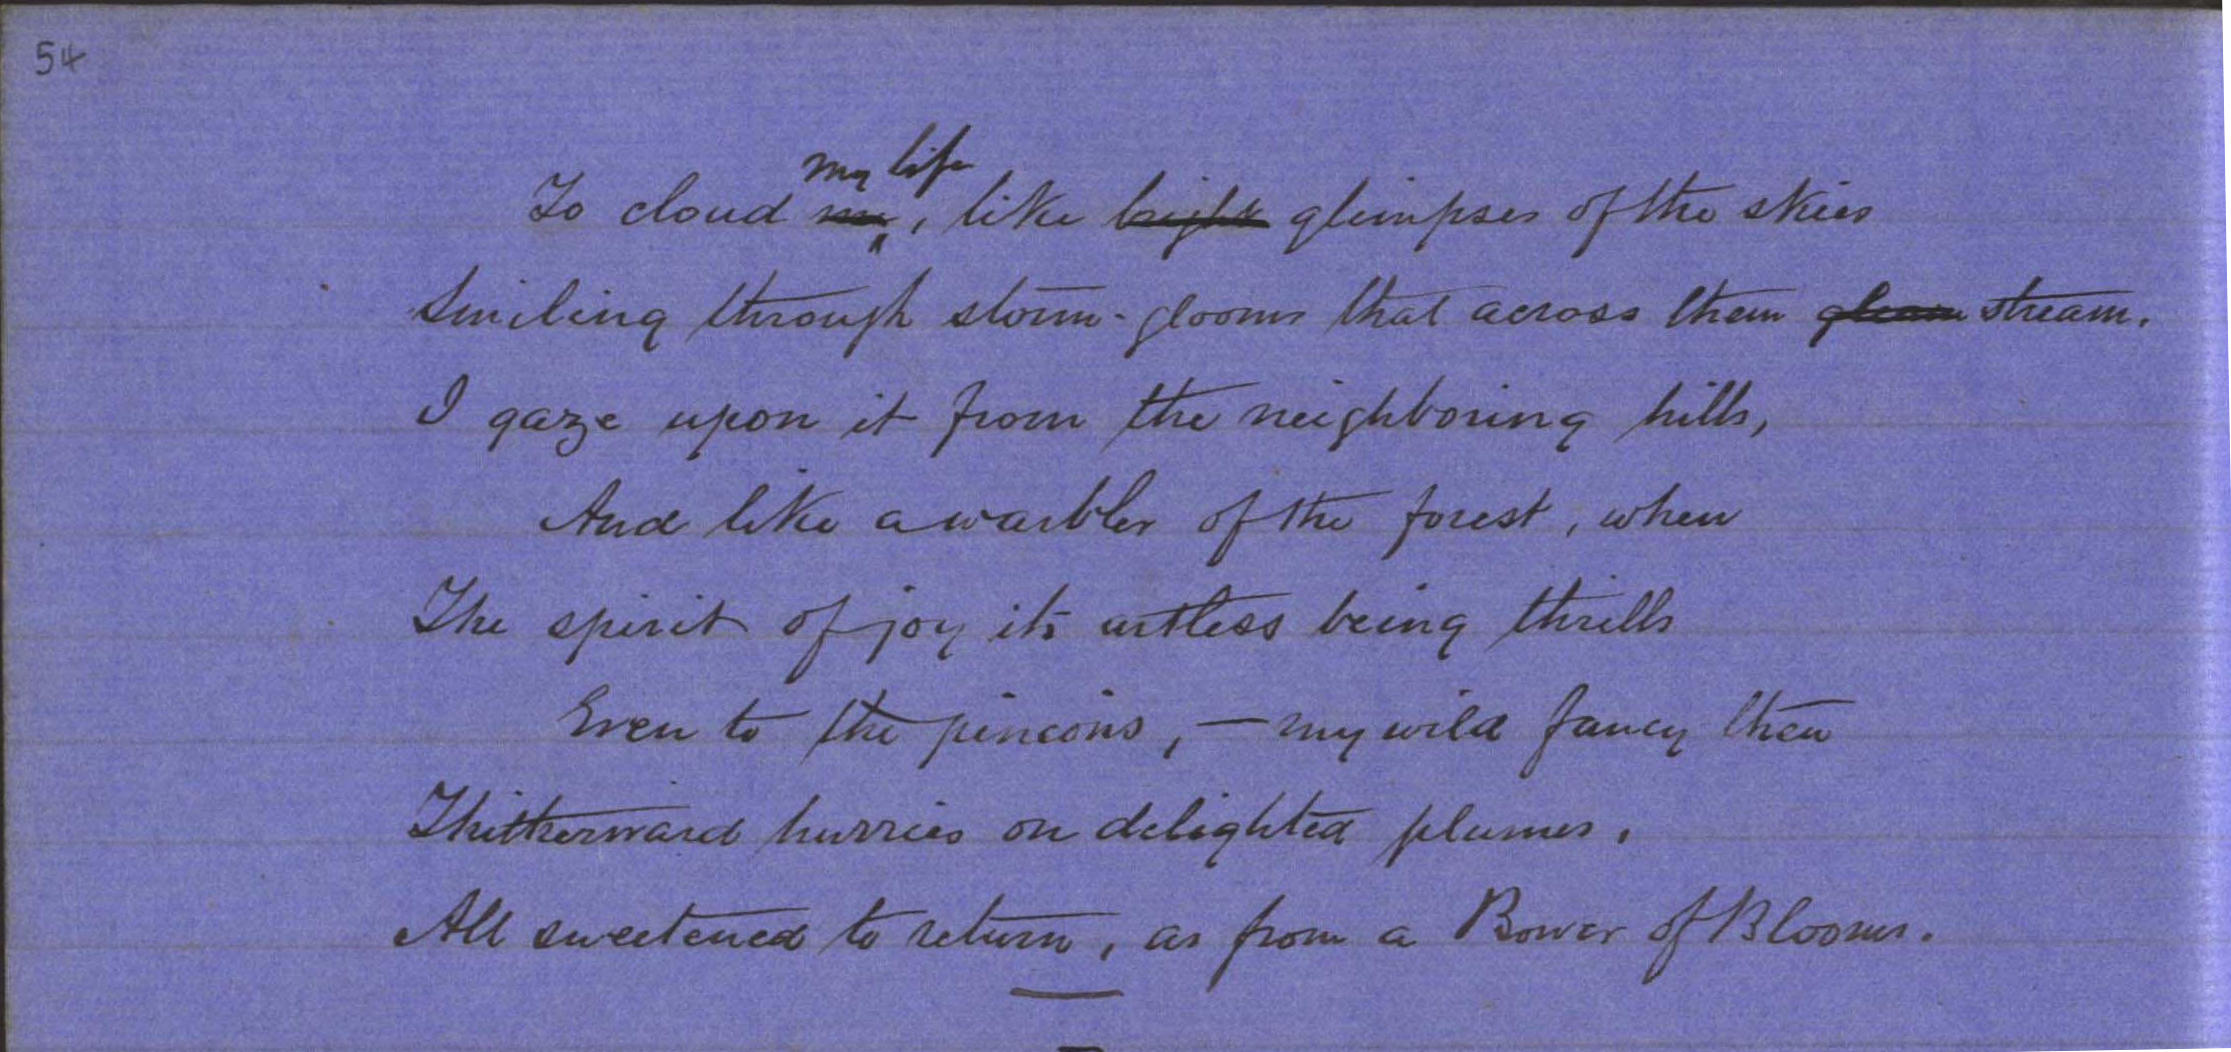 54
my life
To cloud me, like bright glimpses of the skies
Smiling through storm-glooms that across them gleam stream.
I gaze upon it from the neighboring hills,
And like a warbler of the forest, when
The spirit of joy its artless being thrills
Even to the pinions, — my wild fancy then
Thitherward hurries on delighted plumes,
All sweetened to return, as from a Bower of Blooms.